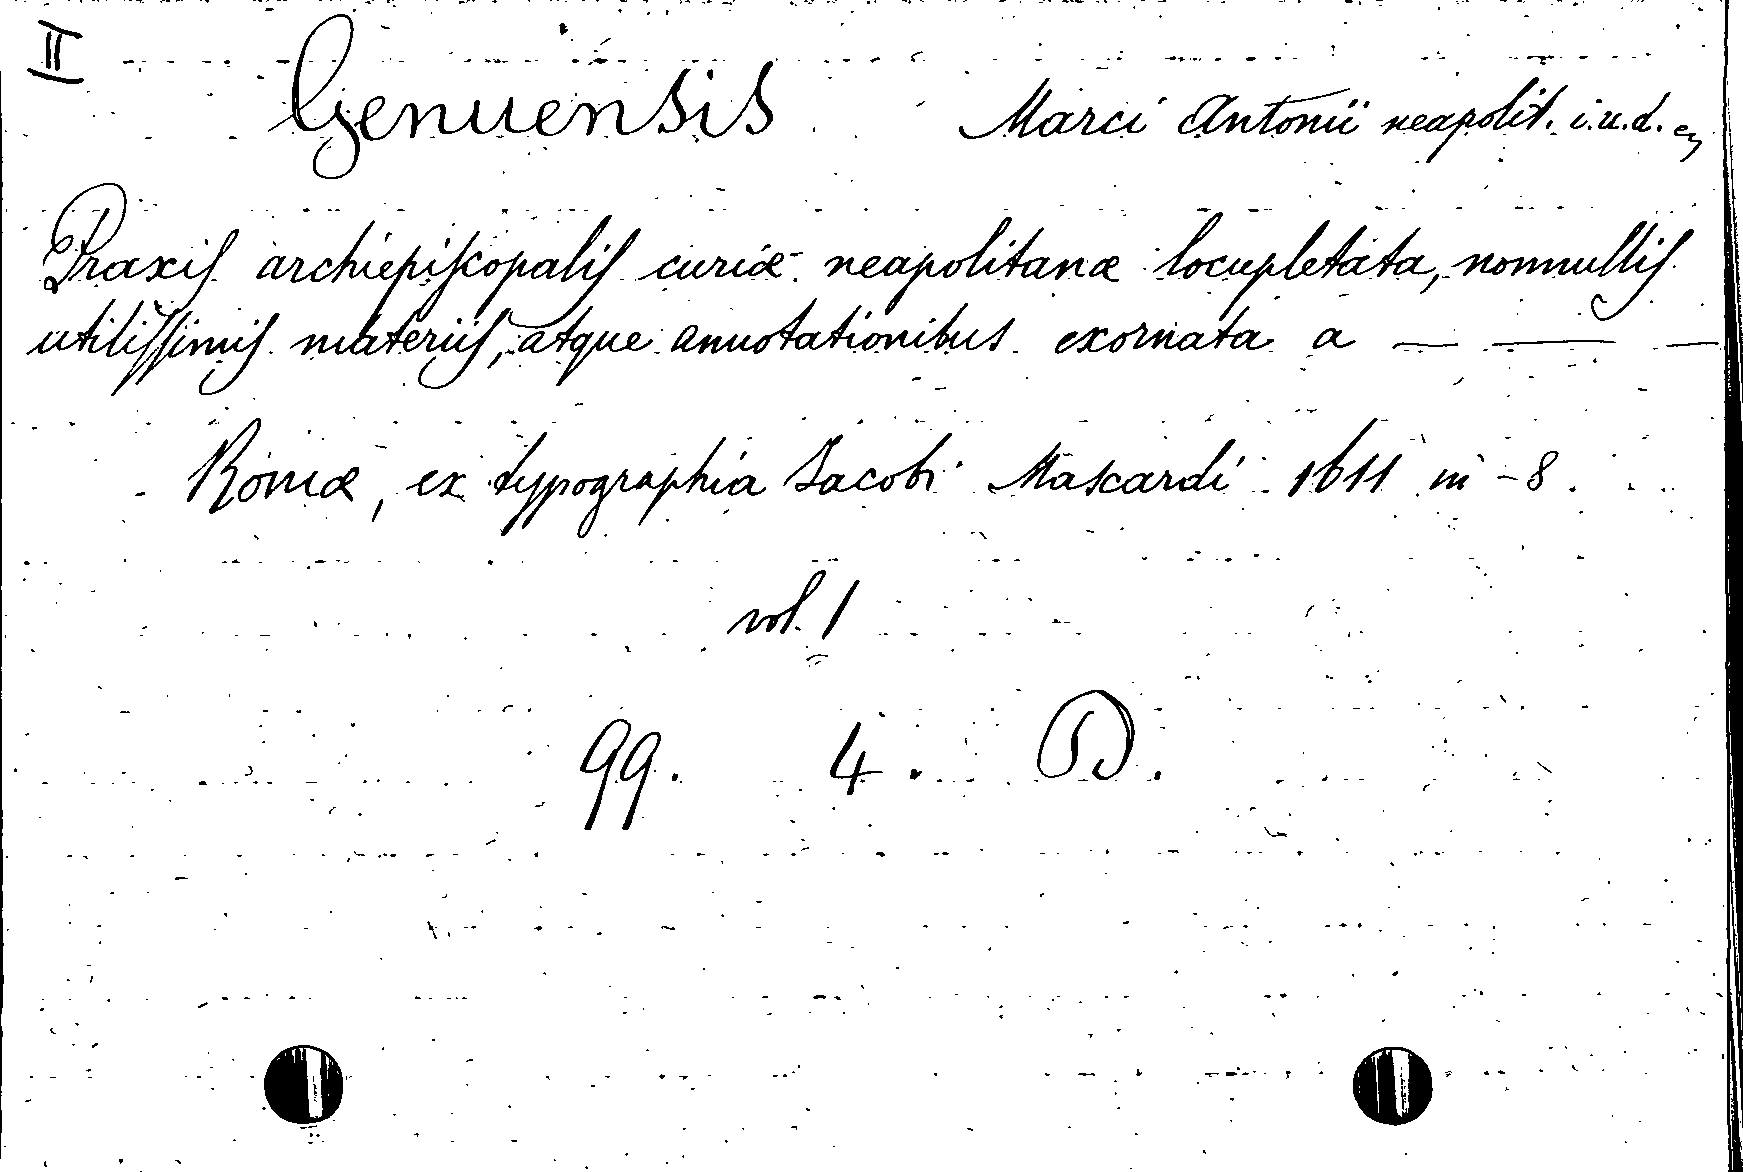 II
Genuensis Marci Antonii neapolit. i.u.d.
Praxis archiepiscopalis curiæ neapolitanæ locupletata, nonnullis
utilissimis materiis, atque annotationibus exornata a — — —
Romæ, ex typographia Jacobi Mascardi 1611 in -8.
vol. 1
99. 4. D.